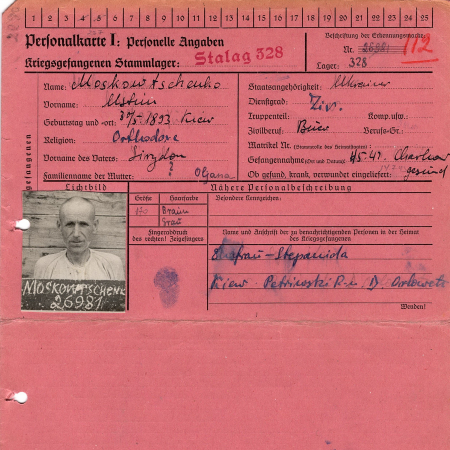 1 2 3 4 5 6 7 8 9 10 11 12 13 14 15 16 17 18 19 20 21 22 23 24 25
Personalkarte I: Personelle Angaben
Kriegsgefangenen Stammlager: Stalag 328
Beschriftung der Erkennungsmarke
Nr. 26981 112
Lager: 328
Name: Moskowtschenko
Vorname: Ustin
Geburtstag und -ort: 1893 Kiew
Religion: Orthodoxe
Vorname des Vaters:
Familienname der Mutter: ? Oljana
Staatsangehörigkeit: Ukrainer
Dienstgrad: Ziv.
Truppenteil: Komp. usw.:
Zivilberuf: Bauer Berufs-Gr.:
Matrikel Nr. (Stammrolle des Heimatstaates):
Gefangennahme (Ort und Datum): Charkow
Ob gesund, krank, verwundet eingeliefert: gesund
Lichtbild
Größe
Haarfarbe
170
Braun
Grau
Fingerabdruck
des rechten! Zeigefingers
Nähere Personalbeschreibung
Besondere Kennzeichen:
Name und Anschrift der zu benachrichtigenden Personen in der Heimat
des Kriegsgefangenen
Ehefrau-Stepanida
Kiew
Wenden!
Moskowtschenk
26981